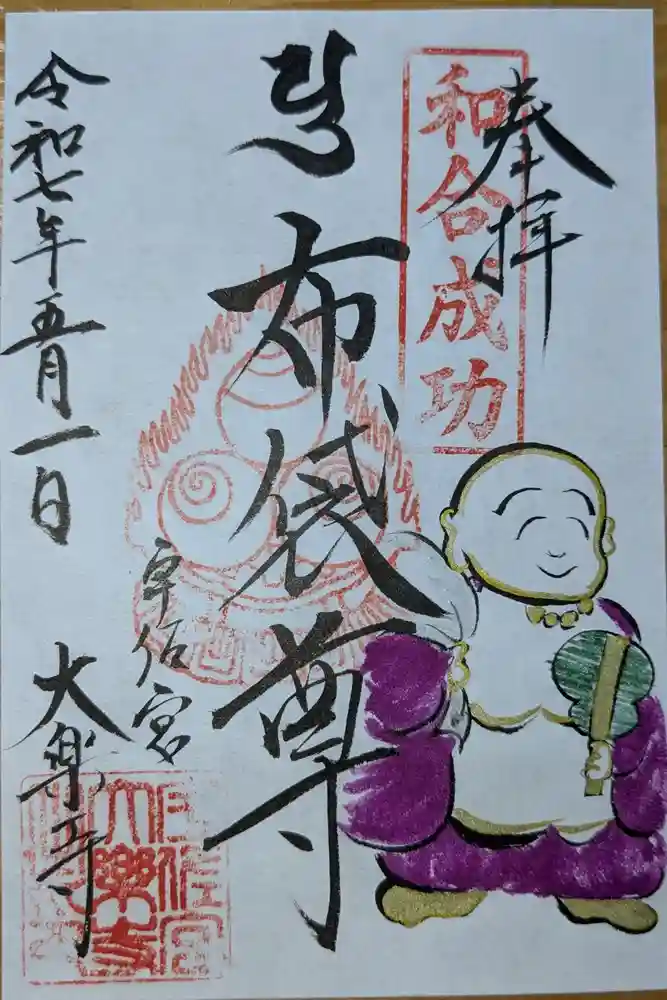 奉拝
和合成功
布袋尊
宇佐宮
大楽寺
令和七年五月一日